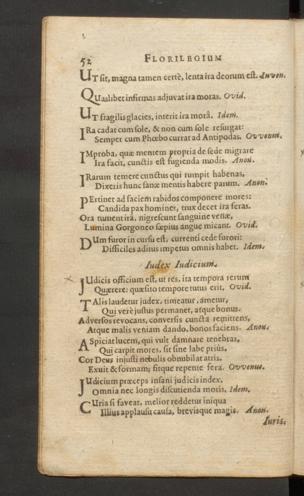 52 FLORILEGIUM
UT sit, magna tamen certè, lenta ira deorum est. Juven.
QUaslibet infirmas adjuvat ira moras. Ovid.
UT fragilis glacies, interit ira morâ. Idem.
IRa cadat cum sole, & non cum sole resurgat:
Semper cum Phœbo currat ad Antipodas. Ovvenus.
IMproba, quæ mentem propria de sede migrare
Ira facit, cunctis est fugienda modis. Anon.
IRarum temere cunctus qui rumpit habenas,
Dixeris hunc sanæ mentis habere parum. Anon.
PErtinet ad faciem rabidos componere mores:
Candida pax homines, trux decet ira feras.
Ora tument irâ, nigrescunt sanguine venæ,
Lumina Gorgoneo sæpius angue micant. Ovid.
DUm furor in cursu est, currenti cede furori:
Difficiles aditus impetus omnis habet. Idem.
Judex Judicium.
JUdicis officium est, ut res, ita tempora rerum
Quærere: quæsito tempore tutus erit. Ovid.
TAlis laudetur judex, timeatur, ametur,
Qui verè justus permanet, atque bonus.
Adversos revocans, conversis cuncta remittens,
Atque malis veniam dando, bonos faciens. Anon.
ASpiciat lucem, qui vult damnare tenebras,
Qui carpit mores, sit sine labe prius,
Cor Deus injusti nebulis obnubilat atris,
Exuit & formam; sitque repente fera. Ovvenus.
JUdicium præceps insani judicis index,
Omnia nec longis discutienda moris. Idem.
CUria si faveat, melior reddetur iniqua
Illius applausu causa, brevisque magis. Anon.
Juris.